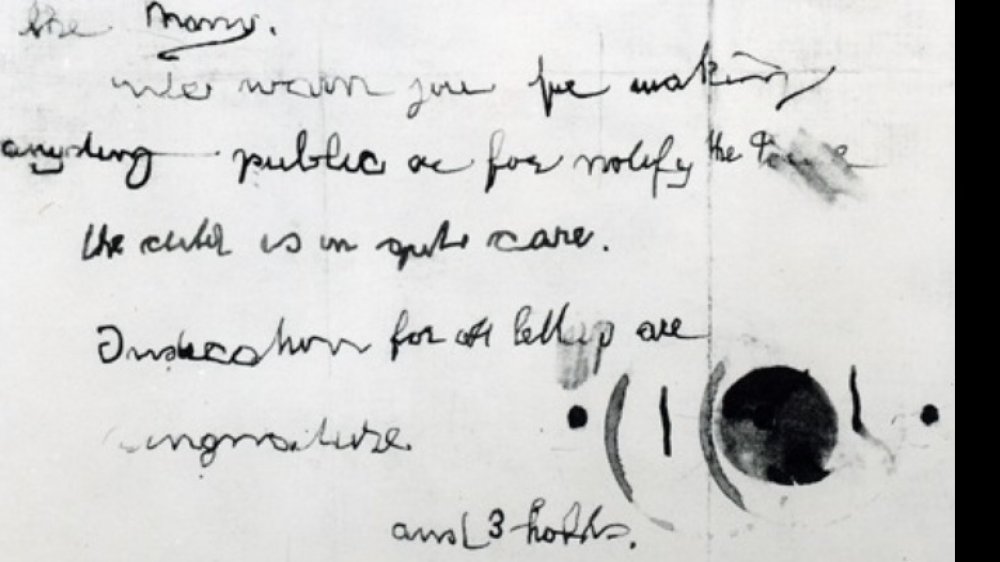 the mony.
We warn you for making
anyding public or for notify the Polise
the child is in gute care.
Indication for all letters are
singnature
and 3 holds.